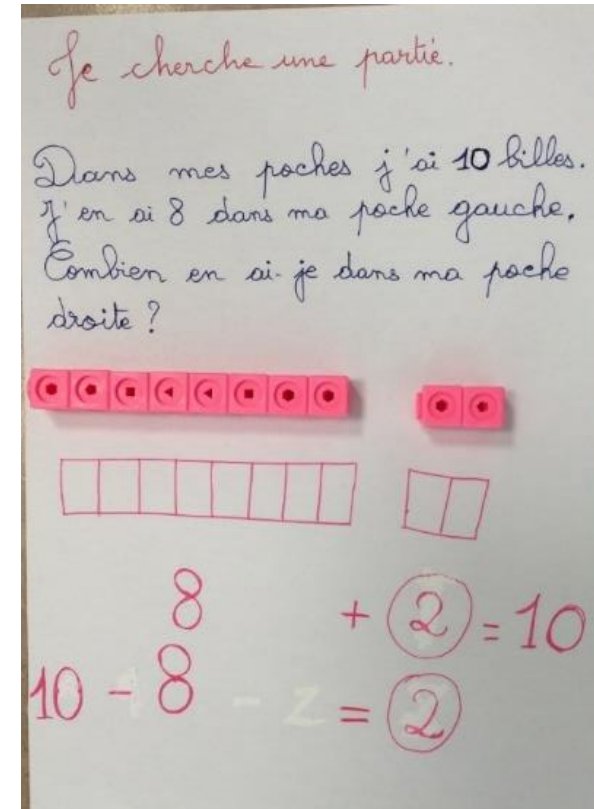 Je cherche une partie.
Dans mes poches j'ai 10 billes.
J'en ai 8 dans ma poche gauche.
Combien en ai-je dans ma poche
droite ?
8 + 2 = 10
10 - 8 = 2